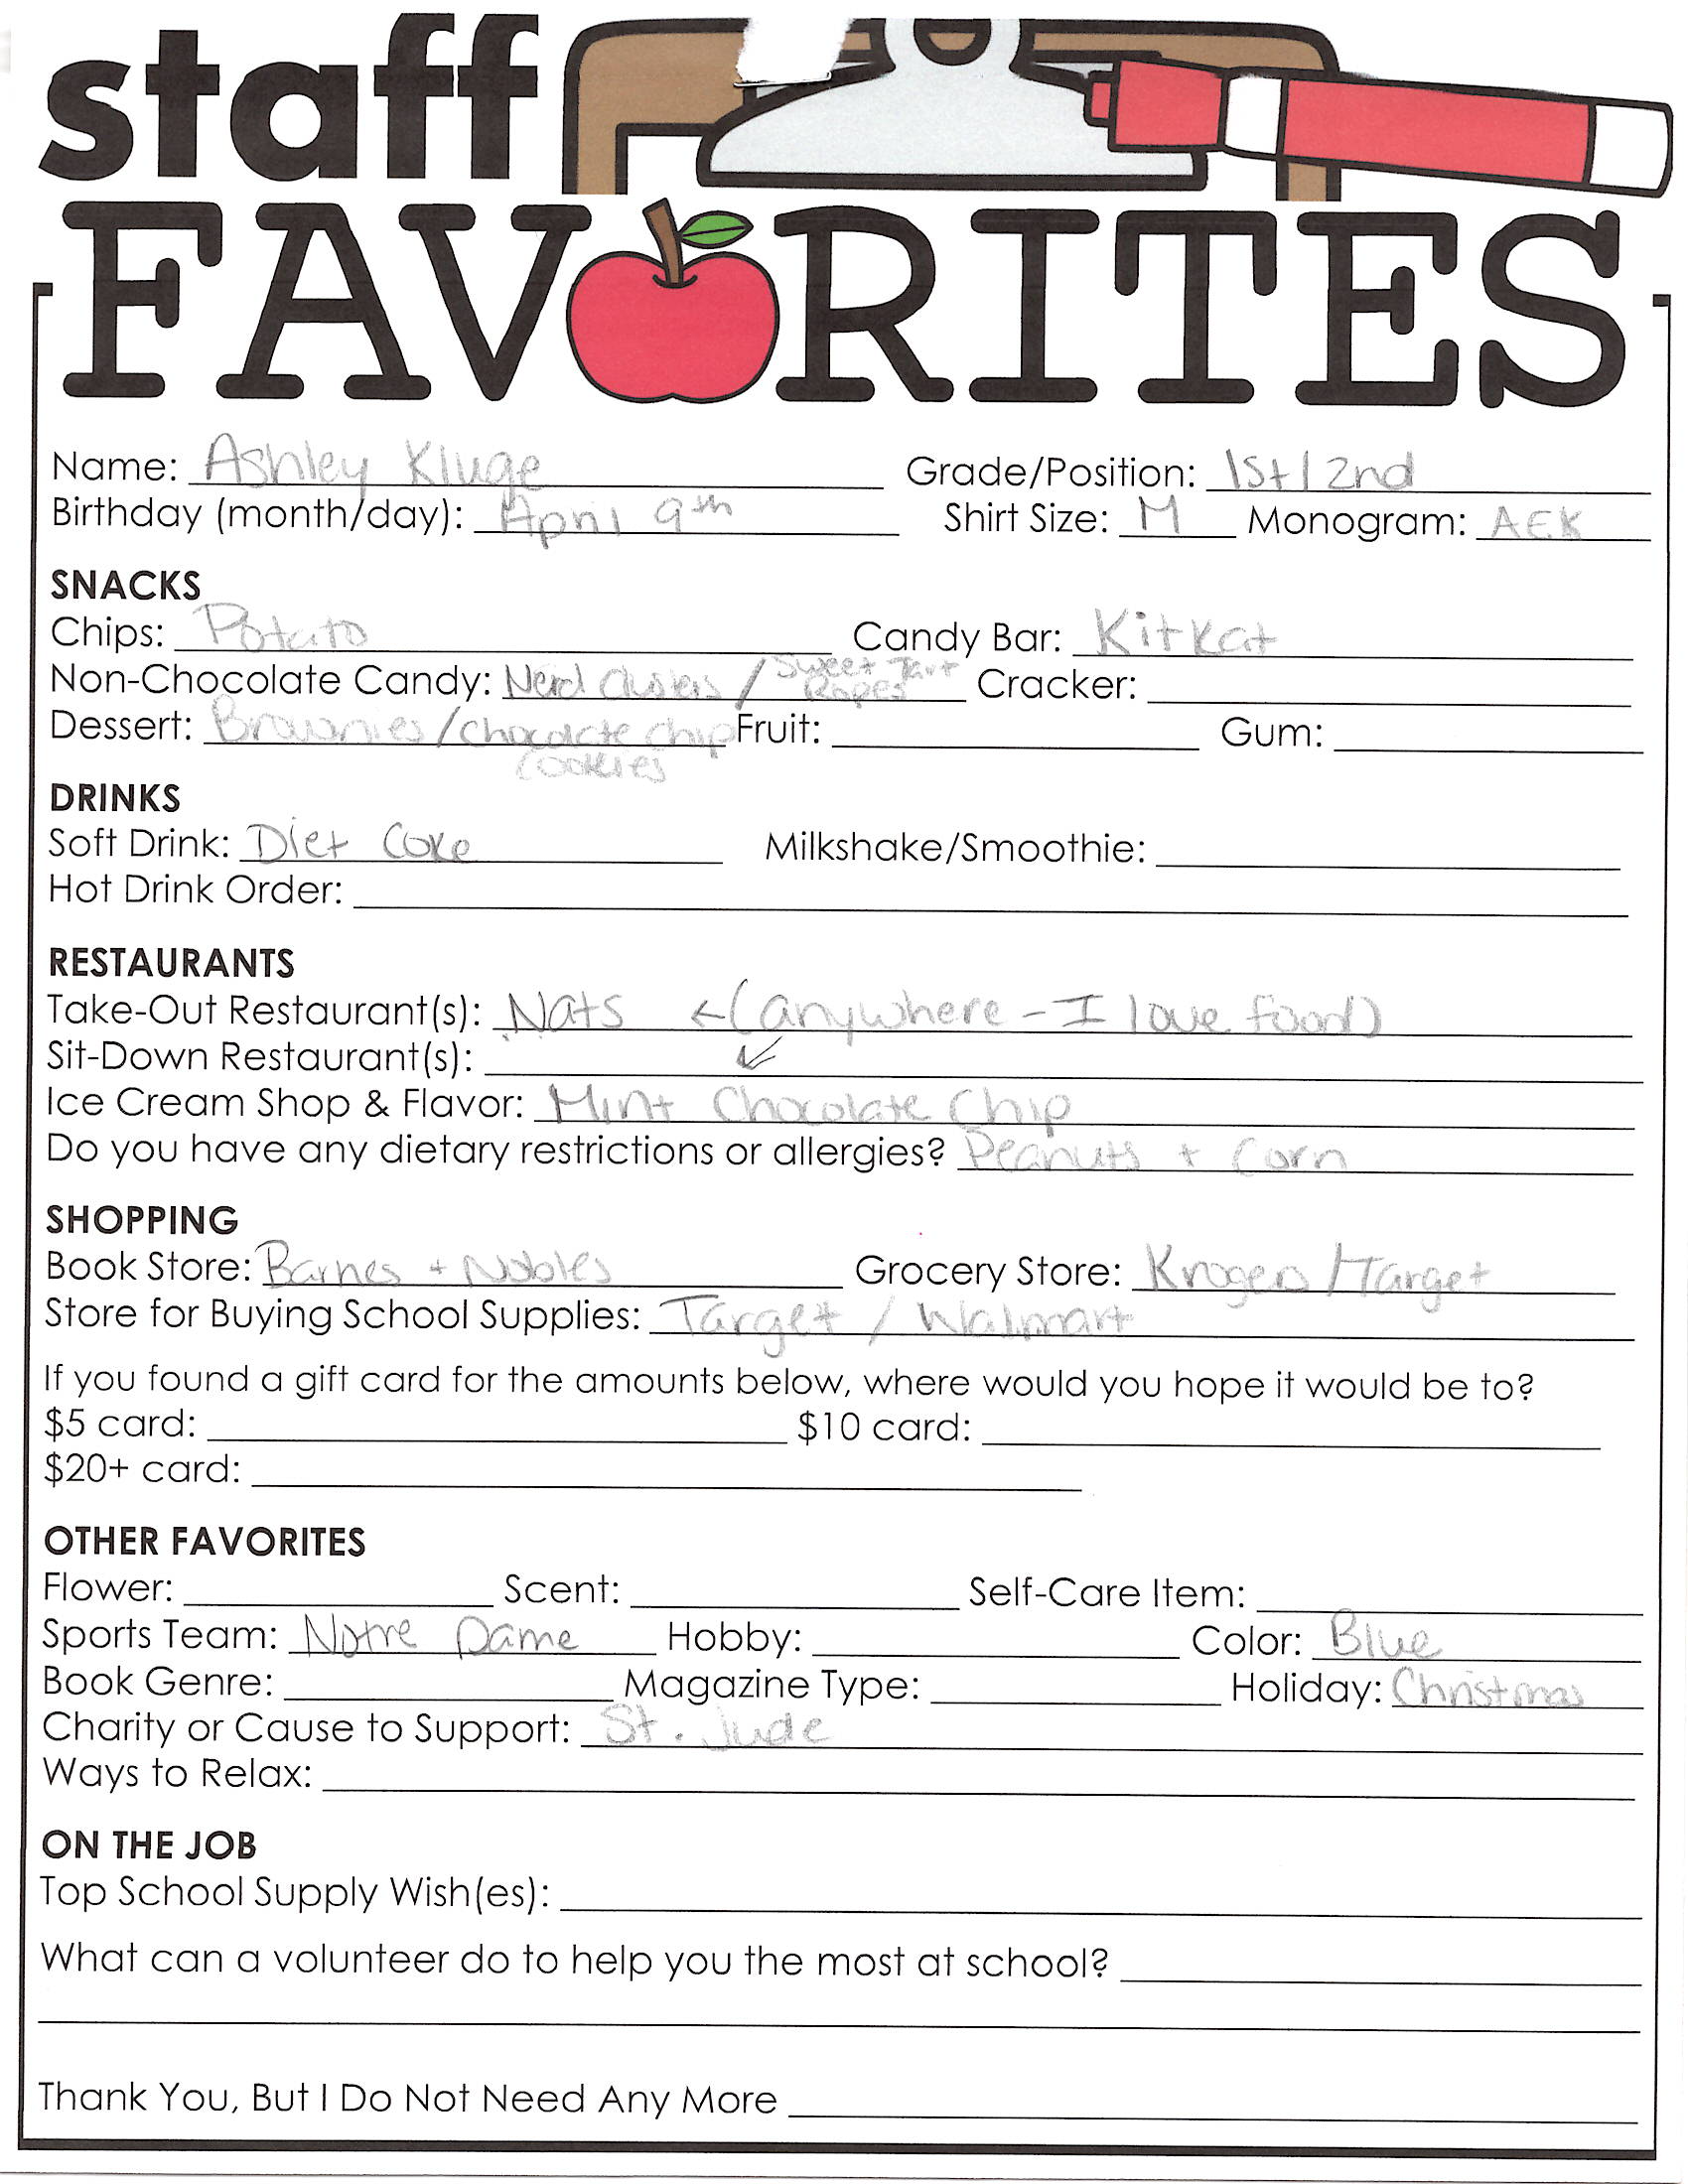 staff
FAVORITES
Name: Ashley Kluge Grade/Position: 1st/2nd
Birthday (month/day): April 9th Shirt Size: M Monogram: AEK
SNACKS
Chips: Potato Candy Bar: KitKat
Non-Chocolate Candy: Nerd Clusters / Sweet Tart Ropes Cracker:
Dessert: Brownies/chocolate chip cookies Fruit: Gum:
DRINKS
Soft Drink: Diet Coke Milkshake/Smoothie:
Hot Drink Order:
RESTAURANTS
Take-Out Restaurant(s): Nats ←(anywhere - I love food)
Sit-Down Restaurant(s): ↙
Ice Cream Shop & Flavor: Mint Chocolate Chip
Do you have any dietary restrictions or allergies? Peanuts + Corn
SHOPPING
Book Store: Barnes + Nobles Grocery Store: Kroger/Target
Store for Buying School Supplies: Target / Walmart
If you found a gift card for the amounts below, where would you hope it would be to?
$5 card: $10 card:
$20+ card:
OTHER FAVORITES
Flower: Scent: Self-Care Item:
Sports Team: Notre Dame Hobby: Color: Blue
Book Genre: Magazine Type: Holiday: Christmas
Charity or Cause to Support: St. Jude
Ways to Relax:
ON THE JOB
Top School Supply Wish(es):
What can a volunteer do to help you the most at school?
Thank You, But I Do Not Need Any More